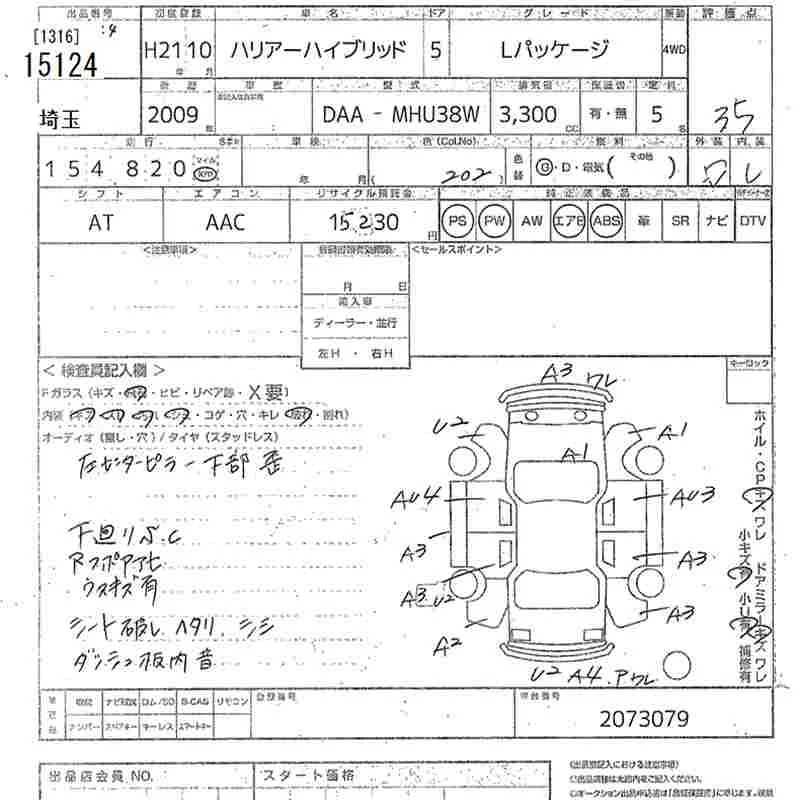 出品番号 初度登録 車名 ドア グレード 駆動 評価点
[1316] 4
15124
H21 10 ハリアーハイブリッド 5 Lパッケージ 4WD
年 月
埼玉
車歴 型式 排気量 保証書 定員
2009 DAA - MHU38W 3,300 有・無 5 35
年 CC 名
走行 車検 色(Col.No) 燃料 外装 内装
154,820 マイル km 年 月 ( 202 ) 色替 G・D・電気( その他 )
シフト エアコン リサイクル預託金 純正装備品
AT AAC 15230 円 PS PW AW エアB ABS 革 SR ナビ DTV
<注意事項> <セールスポイント>
月 日
輸入車
ディーラー・並行
左H ・ 右H
<検査員記入欄> キーロック
Fガラス(キズ・飛石・ヒビ・リペア跡・X要)
内張 コゲ・穴・キレ
オーディオ(無し・穴)/タイヤ(スタッドレス)
左センターピラー下部歪
下廻りS.C
ウスキズ有
シート破レ ヘタリ. シミ
ダッシュ板内音
A3 ワレ
U2 A1
A1
AU4 AU3
A3 A3
A3 U2 A3
A2
U2 A4. Pワレ
ホイル・CPキズワレ ドアミラーキズワレ
小キズ有 小U有 補修有
ナビROM ロム/SD B-CAS リモコン 登録番号 車台番号
ナンバー スペアキー キーレス スマートキー
2073079
出品店会員 NO. スタート価格
(出品票記入における注意事項)
○出品店様は太枠内をご記入ください。